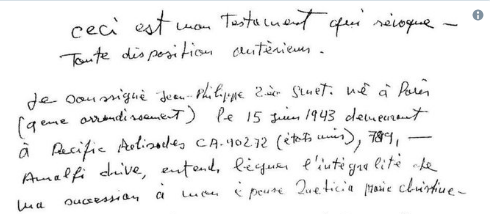 ceci est mon Testament qui révoque –
Toute disposition antérieure.
Je soussigné Jean-Philippe Léo Smet. né à Paris
(9eme arrondissement) le 15 juin 1943 demeurant
à Pacific Palisades CA-90272 (états unis), 789, –
Amalfi drive, entends léguer l'intégralité de
ma succession à mon épouse Laeticia Marie Christine –